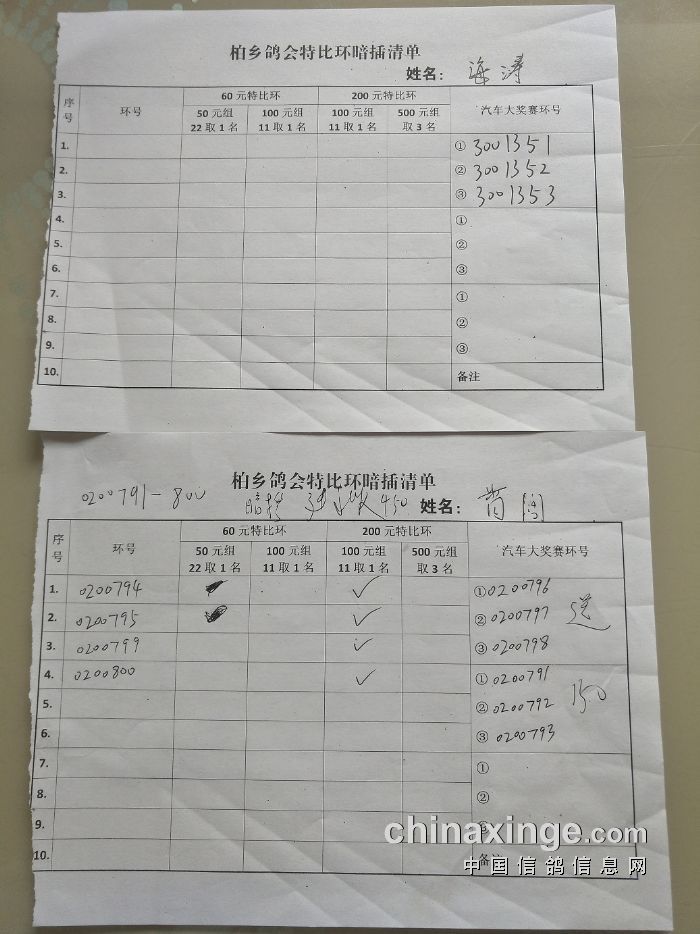 柏乡鸽会特比环暗插清单
姓名：海涛
序号 环号 60元特比环 200元特比环 汽车大奖赛环号
50元组 22取1名 100元组 11取1名 100元组 11取1名 500元组 取3名
1. ① 3001351
2. ② 3001352
3. ③ 3001353
4. ①
5. ②
6. ③
7. ①
8. ②
9. ③
10. 备注
柏乡鸽会特比环暗插清单
0200791-800 暗插 450 姓名：
序号 环号 60元特比环 200元特比环 汽车大奖赛环号
50元组 22取1名 100元组 11取1名 100元组 11取1名 500元组 取3名
1. 0200794 ✓ ①0200796
2. 0200795 ✓ ②0200797 送
3. 0200799 ✓ ③0200798
4. 0200800 ✓ ①0200791
5. ②0200792 150
6. ③0200793
7. ①
8. ②
9. ③
10. 备注
chinaxinge.com
中国信鸽信息网